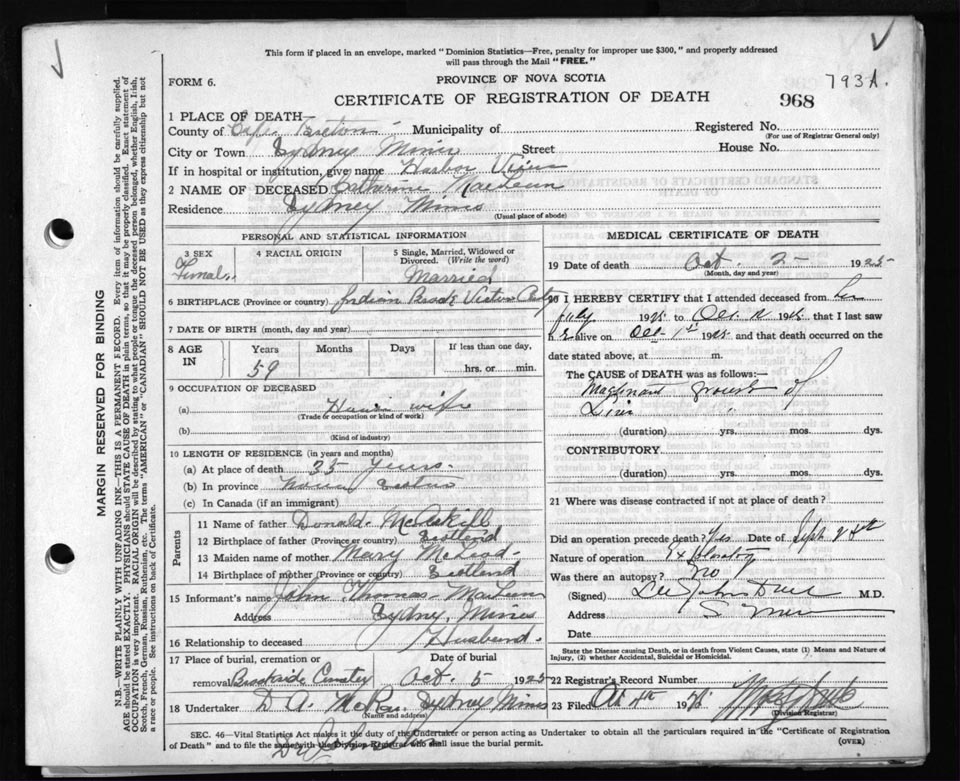 This form if placed in an envelope, marked "Dominion Statistics—Free, penalty for improper use $300," and properly addressed
will pass through the Mail "FREE."
FORM 6.
PROVINCE OF NOVA SCOTIA
793A.
CERTIFICATE OF REGISTRATION OF DEATH
968
1 PLACE OF DEATH—
County of Cape Breton Municipality of
Registered No.
(For use of Registrar General only)
City or Town Sydney Mines Street House No.
If in hospital or institution, give name Harbor View
2 NAME OF DECEASED Catherine MacLean
Residence Sydney Mines
(Usual place of abode)
PERSONAL AND STATISTICAL INFORMATION
3 SEX Female
4 RACIAL ORIGIN
5 Single, Married, Widowed or
Divorced. (Write the word)
Married
6 BIRTHPLACE (Province or country) Indian Brook Victoria
7 DATE OF BIRTH (month, day and year)
8 AGE IN
Years Months Days If less than one day,
59 hrs. or min.
9 OCCUPATION OF DECEASED
(a) House wife
(Trade or occupation or kind of work)
(b)
(Kind of industry)
10 LENGTH OF RESIDENCE (in years and months)
(a) At place of death 35 years.
(b) In province Nova Scotia
(c) In Canada (if an immigrant)
Parents
11 Name of father Donald McAskill
12 Birthplace of father (Province or country) Scotland
13 Maiden name of mother Mary McLeod
14 Birthplace of mother (Province or country) Scotland
15 Informant's name John Thomas MacLean
Address Sydney Mines
16 Relationship to deceased Husband.
17 Place of burial, cremation or Date of burial
removal Brookside Cemetery Oct. 5 1925
18 Undertaker D A McRae Sydney Mines
(Name and address)
MEDICAL CERTIFICATE OF DEATH
19 Date of death Oct. 2- 1925
(Month, day and year)
20 I HEREBY CERTIFY that I attended deceased from
July 1925 to Oct. 1925, that I last saw
h alive on Oct 1st 1925 and that death occurred on the
date stated above, at m.
The CAUSE OF DEATH was as follows:—
Malignant growth of
Liver
(duration) yrs. mos. dys.
CONTRIBUTORY
(duration) yrs. mos. dys.
21 Where was disease contracted if not at place of death?
Did an operation precede death? Yes Date of Sept
Nature of operation Exploratory
Was there an autopsy? no
(Signed) M.D.
Address
Date
State the Disease causing Death, or in death from Violent Causes, state (1) Means and Nature of
Injury, (2) whether Accidental, Suicidal or Homicidal.
22 Registrar's Record Number
23 Filed Oct 4th 19
(Division Registrar)
SEC. 46—Vital Statistics Act makes it the duty of the Undertaker or person acting as Undertaker to obtain all the particulars required in the "Certificate of Registration
of Death" and to file the same with the Division Registrar who shall issue the burial permit.
(OVER)
MARGIN RESERVED FOR BINDING
N.B.—WRITE PLAINLY, WITH UNFADING INK—THIS IS A PERMANENT RECORD. Every item of information should be carefully supplied.
AGE should be stated EXACTLY. PHYSICIANS should STATE CAUSE OF DEATH in plain terms, so that it may be properly classified. Exact statement of
OCCUPATION is very important. RACIAL ORIGIN will be described by stating to what people or tongue the deceased person belonged, whether English, Irish,
Scotch, French, German, Russian, Ruthenian, etc. The terms "AMERICAN" or "CANADIAN" SHOULD NOT BE USED as they express citizenship but not
a race or people. See instructions on back of Certificate.